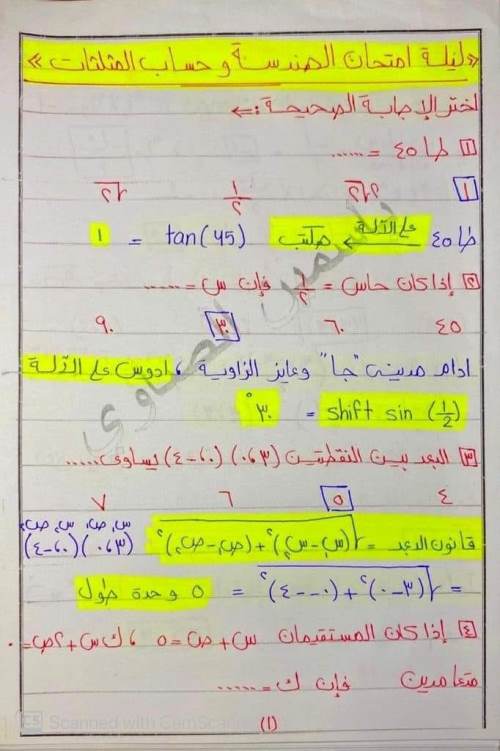 «ليلة امتحان الهندسة وحساب المثلثات»
اختر الإجابة الصحيحة :-
١ طا ٤٥ = ......
١ ٢√٢ ١/٢ √٢
طا ٤٥ على الآلة هتكتب tan(45) = ١
٢ إذا كان جاس = ١/٢ فإن س = ......
٤٥ ٦٠ ٣٠ ٩٠
ادام مدينى "جا" وعايز الزاوية ، ادوس على الآلة
shift sin (١/٢) = ٣٠°
٣ البعد بين النقطتين (٣، ٠) (٠، -٤) يساوى .....
٤ ٥ ٦ ٧
قانون البعد = √(س₁-س₂)²+(ص₁-ص₂)² س₁ ص₁ س₂ ص₂ (٣، ٠) (٠، -٤)
= √(٣-٠)²+(٠--٤)² = ٥ وحدة طول
٤ إذا كان المستقيمان س + ص = ٥ ، ك س + ٢ص = ٠
متعامدين فإن ك = ......
(١)
CS Scanned with CamScanner